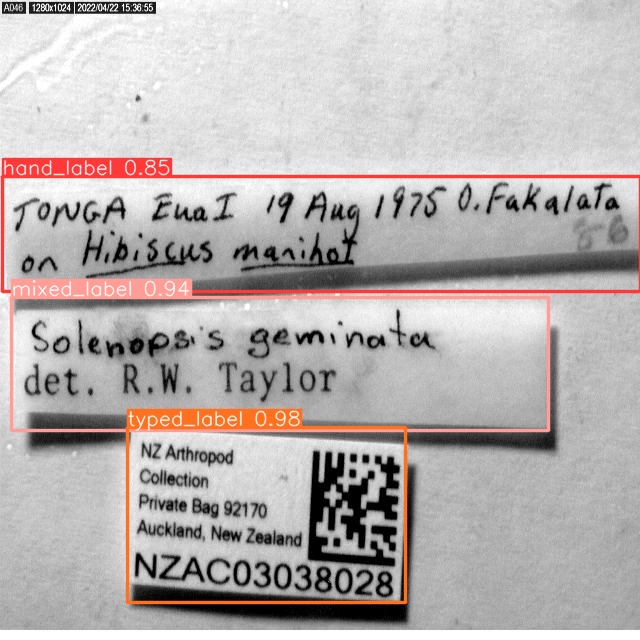 A046 1280x1024 2022/04/22 15:36:55
hand_label 0.85
TONGA Eua I 19 Aug 1975 O. Fakalata
8-6
on Hibiscus manihot
mixed_label 0.94
Solenopsis geminata
det. R.W. Taylor
typed_label 0.98
NZ Arthropod
Collection
Private Bag 92170
Auckland, New Zealand
NZAC03038028